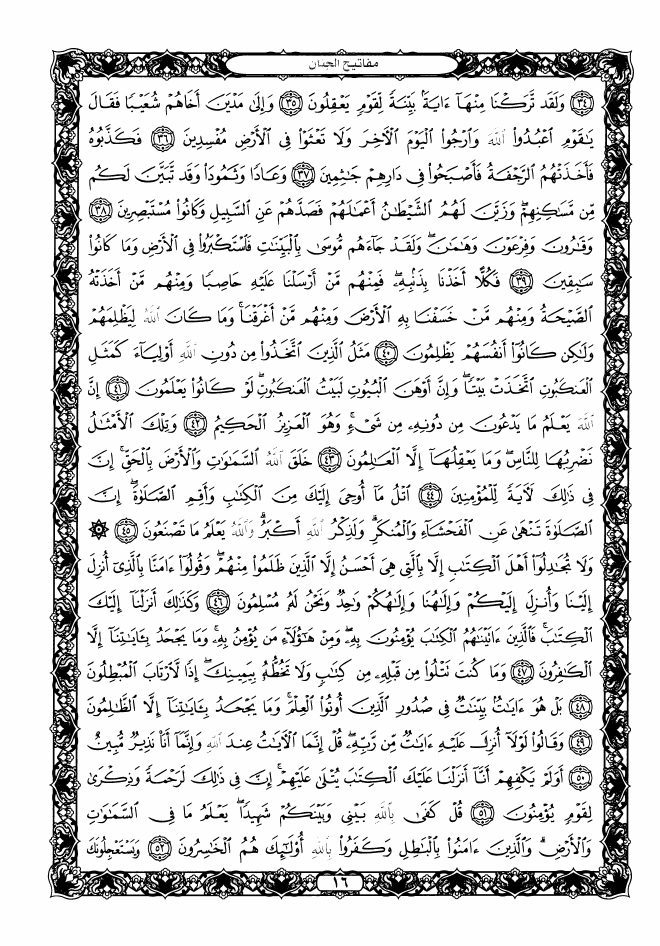 مفاتيح الجنان
﴿٣٤﴾ وَلَقَد تَّرَكْنَا مِنْهَآ ءَايَةَۢ بَيِّنَةً لِّقَوْمٍ يَعْقِلُونَ ﴿٣٥﴾ وَإِلَىٰ مَدْيَنَ أَخَاهُمْ شُعَيْبًا فَقَالَ
يَٰقَوْمِ ٱعْبُدُوا۟ ٱللَّهَ وَٱرْجُوا۟ ٱلْيَوْمَ ٱلْءَاخِرَ وَلَا تَعْثَوْا۟ فِى ٱلْأَرْضِ مُفْسِدِينَ ﴿٣٦﴾ فَكَذَّبُوهُ
فَأَخَذَتْهُمُ ٱلرَّجْفَةُ فَأَصْبَحُوا۟ فِى دَارِهِمْ جَٰثِمِينَ ﴿٣٧﴾ وَعَادًا وَثَمُودَا۟ وَقَد تَّبَيَّنَ لَكُم
مِّن مَّسَٰكِنِهِمْ ۖ وَزَيَّنَ لَهُمُ ٱلشَّيْطَٰنُ أَعْمَٰلَهُمْ فَصَدَّهُمْ عَنِ ٱلسَّبِيلِ وَكَانُوا۟ مُسْتَبْصِرِينَ ﴿٣٨﴾
وَقَٰرُونَ وَفِرْعَوْنَ وَهَٰمَٰنَ ۖ وَلَقَدْ جَآءَهُم مُّوسَىٰ بِٱلْبَيِّنَٰتِ فَٱسْتَكْبَرُوا۟ فِى ٱلْأَرْضِ وَمَا كَانُوا۟
سَٰبِقِينَ ﴿٣٩﴾ فَكُلًّا أَخَذْنَا بِذَنۢبِهِۦ ۖ فَمِنْهُم مَّنْ أَرْسَلْنَا عَلَيْهِ حَاصِبًا وَمِنْهُم مَّنْ أَخَذَتْهُ
ٱلصَّيْحَةُ وَمِنْهُم مَّنْ خَسَفْنَا بِهِ ٱلْأَرْضَ وَمِنْهُم مَّنْ أَغْرَقْنَا ۚ وَمَا كَانَ ٱللَّهُ لِيَظْلِمَهُمْ
وَلَٰكِن كَانُوٓا۟ أَنفُسَهُمْ يَظْلِمُونَ ﴿٤٠﴾ مَثَلُ ٱلَّذِينَ ٱتَّخَذُوا۟ مِن دُونِ ٱللَّهِ أَوْلِيَآءَ كَمَثَلِ
ٱلْعَنكَبُوتِ ٱتَّخَذَتْ بَيْتًا ۖ وَإِنَّ أَوْهَنَ ٱلْبُيُوتِ لَبَيْتُ ٱلْعَنكَبُوتِ ۖ لَوْ كَانُوا۟ يَعْلَمُونَ ﴿٤١﴾ إِنَّ
ٱللَّهَ يَعْلَمُ مَا يَدْعُونَ مِن دُونِهِۦ مِن شَىْءٍ ۚ وَهُوَ ٱلْعَزِيزُ ٱلْحَكِيمُ ﴿٤٢﴾ وَتِلْكَ ٱلْأَمْثَٰلُ
نَضْرِبُهَا لِلنَّاسِ ۖ وَمَا يَعْقِلُهَآ إِلَّا ٱلْعَٰلِمُونَ ﴿٤٣﴾ خَلَقَ ٱللَّهُ ٱلسَّمَٰوَٰتِ وَٱلْأَرْضَ بِٱلْحَقِّ ۚ إِنَّ
فِى ذَٰلِكَ لَءَايَةً لِّلْمُؤْمِنِينَ ﴿٤٤﴾ ٱتْلُ مَآ أُوحِىَ إِلَيْكَ مِنَ ٱلْكِتَٰبِ وَأَقِمِ ٱلصَّلَوٰةَ ۖ إِنَّ
ٱلصَّلَوٰةَ تَنْهَىٰ عَنِ ٱلْفَحْشَآءِ وَٱلْمُنكَرِ ۗ وَلَذِكْرُ ٱللَّهِ أَكْبَرُ ۗ وَٱللَّهُ يَعْلَمُ مَا تَصْنَعُونَ ﴿٤٥﴾ ۞
وَلَا تُجَٰدِلُوٓا۟ أَهْلَ ٱلْكِتَٰبِ إِلَّا بِٱلَّتِى هِىَ أَحْسَنُ إِلَّا ٱلَّذِينَ ظَلَمُوا۟ مِنْهُمْ ۖ وَقُولُوٓا۟ ءَامَنَّا بِٱلَّذِىٓ أُنزِلَ
إِلَيْنَا وَأُنزِلَ إِلَيْكُمْ وَإِلَٰهُنَا وَإِلَٰهُكُمْ وَٰحِدٌ وَنَحْنُ لَهُۥ مُسْلِمُونَ ﴿٤٦﴾ وَكَذَٰلِكَ أَنزَلْنَآ إِلَيْكَ
ٱلْكِتَٰبَ ۚ فَٱلَّذِينَ ءَاتَيْنَٰهُمُ ٱلْكِتَٰبَ يُؤْمِنُونَ بِهِۦ ۖ وَمِنْ هَٰٓؤُلَآءِ مَن يُؤْمِنُ بِهِۦ ۚ وَمَا يَجْحَدُ بِـَٔايَٰتِنَآ إِلَّا
ٱلْكَٰفِرُونَ ﴿٤٧﴾ وَمَا كُنتَ تَتْلُوا۟ مِن قَبْلِهِۦ مِن كِتَٰبٍ وَلَا تَخُطُّهُۥ بِيَمِينِكَ ۖ إِذًا لَّٱرْتَابَ ٱلْمُبْطِلُونَ
﴿٤٨﴾ بَلْ هُوَ ءَايَٰتٌۢ بَيِّنَٰتٌ فِى صُدُورِ ٱلَّذِينَ أُوتُوا۟ ٱلْعِلْمَ ۚ وَمَا يَجْحَدُ بِـَٔايَٰتِنَآ إِلَّا ٱلظَّٰلِمُونَ
﴿٤٩﴾ وَقَالُوا۟ لَوْلَآ أُنزِلَ عَلَيْهِ ءَايَٰتٌ مِّن رَّبِّهِۦ ۖ قُلْ إِنَّمَا ٱلْءَايَٰتُ عِندَ ٱللَّهِ وَإِنَّمَآ أَنَا۠ نَذِيرٌ مُّبِينٌ
﴿٥٠﴾ أَوَلَمْ يَكْفِهِمْ أَنَّآ أَنزَلْنَا عَلَيْكَ ٱلْكِتَٰبَ يُتْلَىٰ عَلَيْهِمْ ۚ إِنَّ فِى ذَٰلِكَ لَرَحْمَةً وَذِكْرَىٰ
لِقَوْمٍ يُؤْمِنُونَ ﴿٥١﴾ قُلْ كَفَىٰ بِٱللَّهِ بَيْنِى وَبَيْنَكُمْ شَهِيدًا ۖ يَعْلَمُ مَا فِى ٱلسَّمَٰوَٰتِ
وَٱلْأَرْضِ ۗ وَٱلَّذِينَ ءَامَنُوا۟ بِٱلْبَٰطِلِ وَكَفَرُوا۟ بِٱللَّهِ أُو۟لَٰٓئِكَ هُمُ ٱلْخَٰسِرُونَ ﴿٥٢﴾ وَيَسْتَعْجِلُونَكَ
١٦